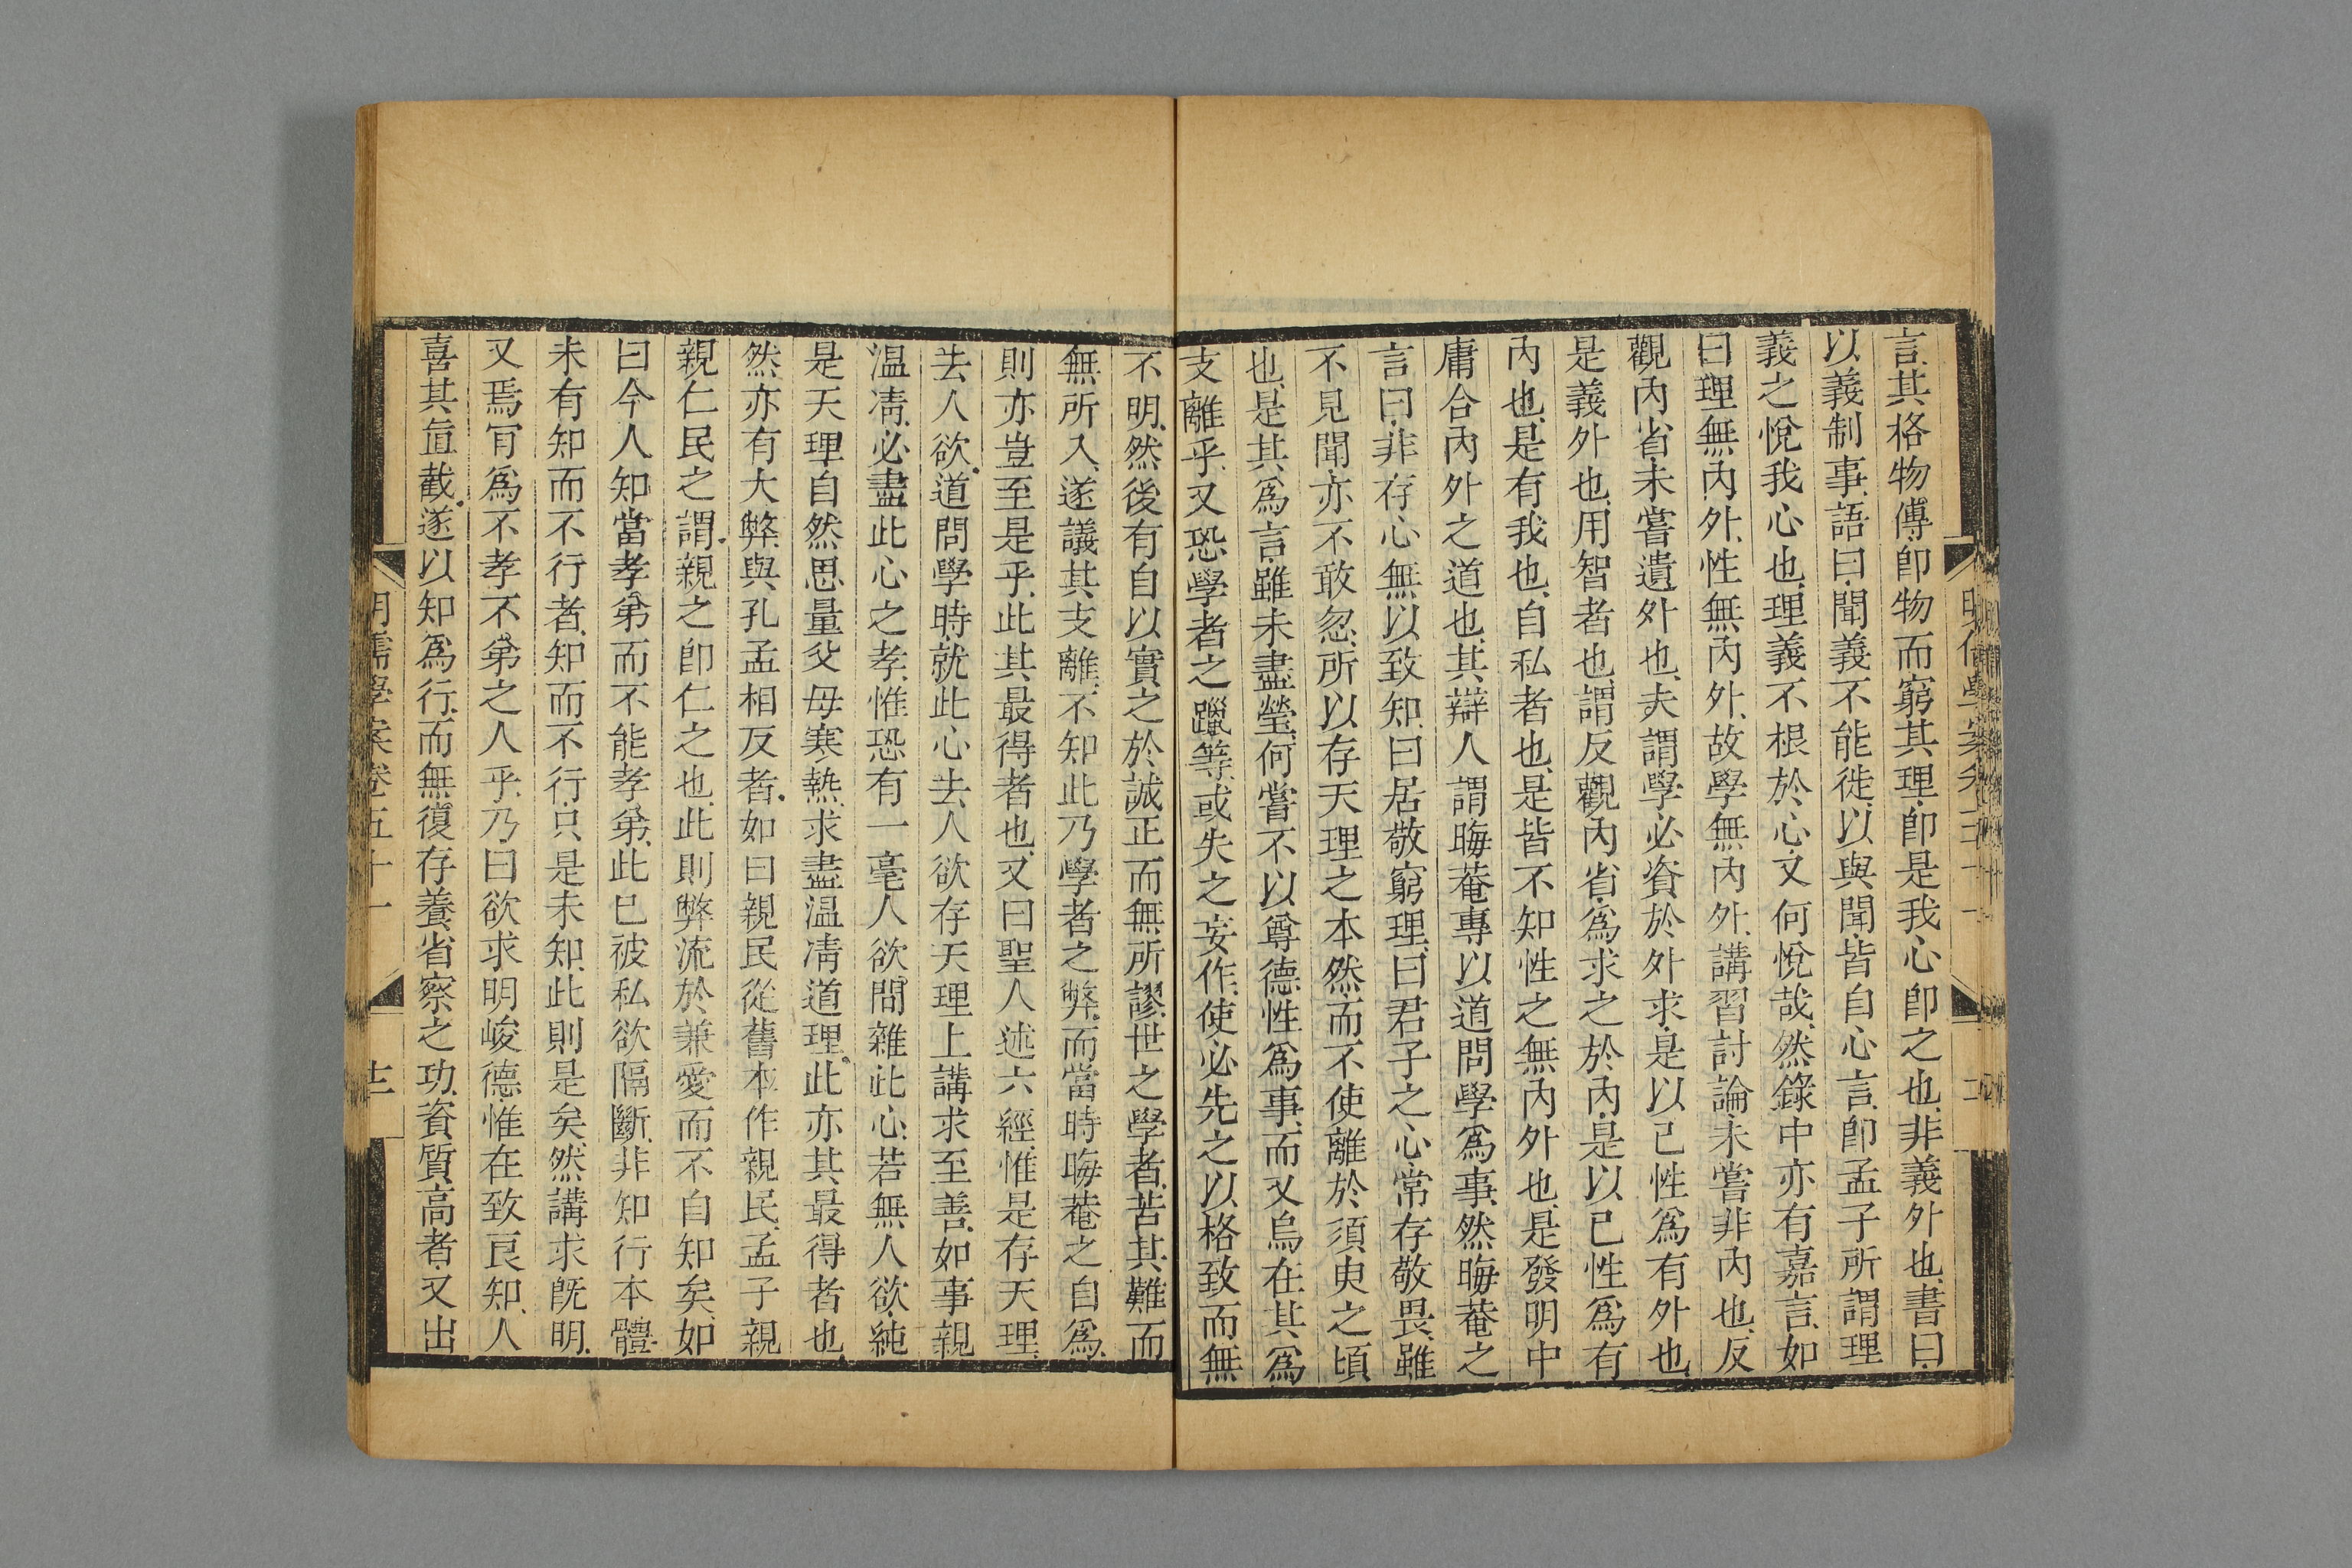 言其格物傳卽物而窮其理卽是我心卽之也非義外也書曰
以義制事語曰聞義不能徙以與聞皆自心言卽孟子所謂理
義之悅我心也理義不根於心又何悅哉然錄中亦有嘉言如
曰理無內外性無內外故學無內外講習討論未嘗非內也反
觀內省未嘗遺外也夫謂學必資於外求是以己性爲有外也
是義外也用智者也謂反觀內省爲求之於內是以己性爲有
內也是有我也自私者也是皆不知性之無內外也是發明中
庸合內外之道也其辯人謂晦菴專以道問學爲事然晦菴之
言曰非存心無以致知曰居敬窮理曰君子之心常存敬畏雖
不見聞亦不敢忽所以存天理之本然而不使離於須臾之頃
也是其爲言雖未盡瑩何嘗不以尊德性爲事而又烏在其爲
支離乎又恐學者之躐等或失之妄作使必先之以格致而無
不明然後有自以實之於誠正而無所謬世之學者苦其難而
無所入遂議其支離不知此乃學者之弊而當時晦菴之自爲
則亦豈至是乎此其最得者也又曰聖人述六經惟是存天理
去人欲道問學時就此心去人欲存天理上講求至善如事親
温凊必盡此心之孝惟恐有一毫人欲間雜此心若無人欲純
是天理自然思量父母寒熱求盡温凊道理此亦其最得者也
然亦有大弊與孔孟相反者如曰親民從舊本作親民孟子親
親仁民之謂親之卽仁之也此則弊流於兼愛而不自知矣如
曰今人知當孝弟而不能孝弟此已被私欲隔斷非知行本體
未有知而不行者知而不行只是未知此則是矣然講求旣明
又焉肎爲不孝不弟之人乎乃曰欲求明峻德惟在致良知人
喜其直截遂以知爲行而無復存養省察之功資質高者又出
明儒學案卷五十一